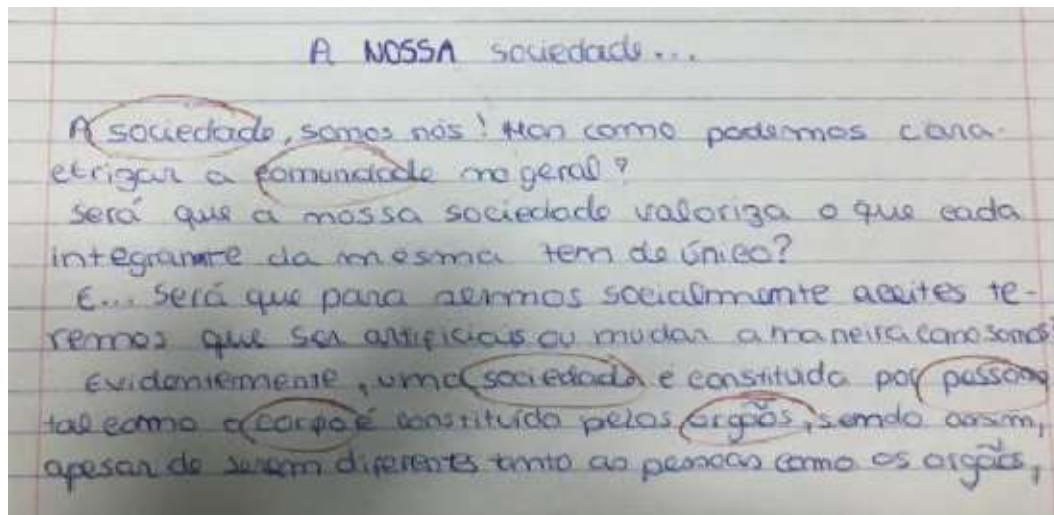 A NOSSA sociedade...
A sociedade, somos nós! Mas como podemos cara-
etrizar a comunidade no geral?
será que a nossa sociedade valoriza o que cada
integrante da mesma tem de único?
E... será que para sermos socialmente aceites te-
remos que ser artificiais ou mudar a maneira como somos?
Evidentemente, uma sociedade é constituida por pessoas
tal como o corpo é constituído pelos orgãos, sendo assim,
apesar de serem diferentes tanto as pessoas como os orgãos,